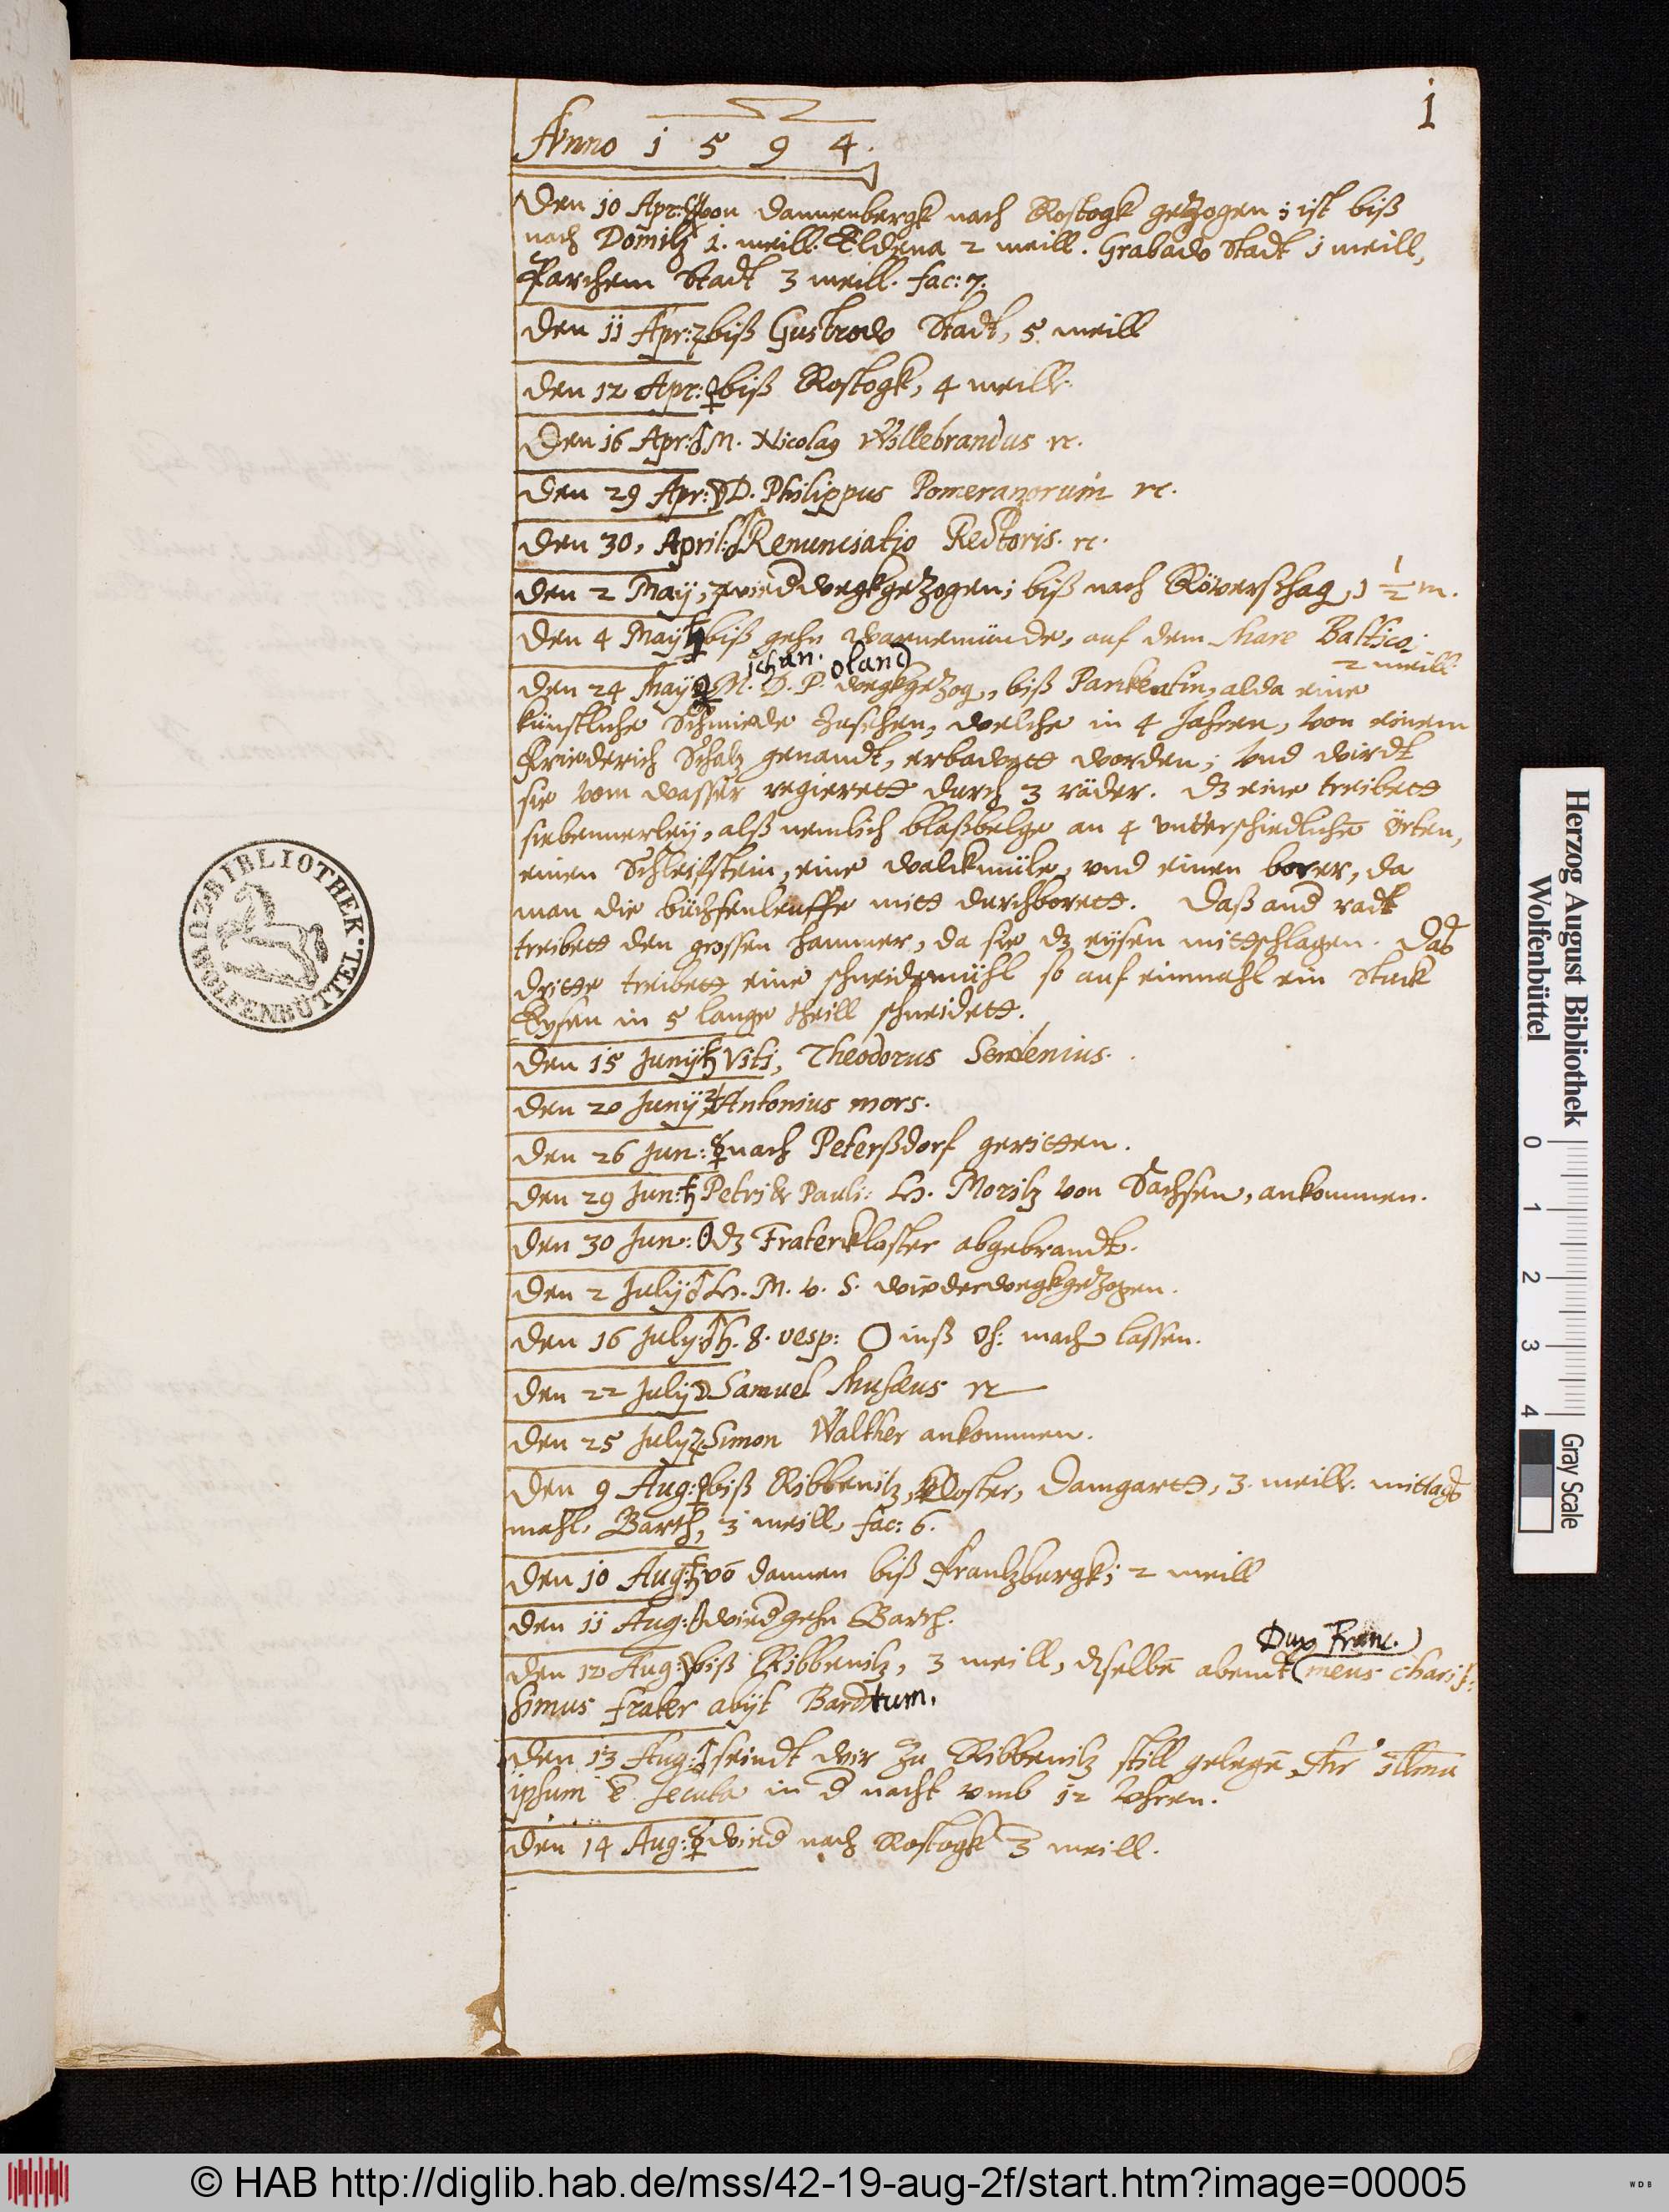 1
Anno 1 5 9 4.
Den 10 Apr: ☿ von Dannenbergk nach Rostogk getzogen; ist biß
nach Dömitz 1. meill. Eldena 2 meill. Grabaw Stadt 1 meill,
Parchem Stadt 3 meill. fac: 7.
Den 11 Apr: ♃ biß Gustrow Stadt, 5. meill
Den 12 Apr: ♀ biß Rostogk, 4 meill.
Den 16 Apr: ♂ M. Nicolaꝰ Willebrandus ꝛc.
Den 29 Apr: ☽ D. Philippus Pomeranorum ꝛc.
Den 30, April: ♂ Renunciatio Rectoris. ꝛc.
Den 2 May, ♃ wied wegkgetzogen; biß nach Röverßhag, 1 1/2 m.
Den 4 May ♄ biß gehn Warnemünde, auf dem Mare Baltico;
2 meill.
Johan. Oland
Den 24 May ♀ M. D. P. wegkgetzog, biß Pankeatin, alda eine
künstliche Schmiede zusehen, welche in 4 Jahren, von einem
Friederich Schalz genandt, erbawett worden; Vnd wirdt
sie vom wasser regierett durch 3 räder. Dz eine treibett
siebennerley, alß nemlich blaßbelge an 4 vntterschiedlichē örten,
einen Schleifstein, eine walckmüle, vnd einen borer, da
man die büchsenleuffe mitt durchborett. Daß and radt
treibett den grossen hammer, da sie dz eysen mittschlagen. Daß
dritte treibett eine schneidemühl so auf einmahl ein Stuck
Eysen in 5 lange theill schneidett.
Den 15 Junij ♄ Viti, Theodorus Sendenius.
Den 20 Junij ♃ Antonius mors.
Den 26 Jun: ☿ nach Peterßdorf geritten.
Den 29 Jun: ♄ Petri & Pauli: H. Moritz von Sachsen, ankommen.
Den 30 Jun: ☉ dz Fraterkloster abgebrandt.
Den 2 July ♂ H. M. v. S. wiederwegkgetzogen.
Den 16 July: ♂ h. 8. vesp: O inß oh: machē lassen.
Den 22 July ☽ Samuel Musæus ꝛc
Den 25 July ♃ Simon Walther ankommen.
Den 9 Aug: ♀ biß Ribbenitz, Kloster, Damgartt, 3. meill. mittagß
mahl, Barth, 3 meill, fac: 6.
Den 10 Aug: ♄ vō dannen biß Frantzburgk; 2 meill
Den 11 Aug: ☉ wied gehn Barth.
Dux Franc.
Den 12 Aug: ☽ biß Ribbenitz, 3 meill, dselbē abendt (meus charis-
simus frater abijt Bardtum.
Den 13 Aug: ♂ seindt wir zu Ribbenitz still gelegē, illma
ipsum ē secuta in d nacht vmb 12 Vhren.
Den 14 Aug: ☿ wied nach Rostogk 3 meill.
BIBLIOTHEK. WOLFENBÜTTEL.
Herzog August Bibliothek
Wolfenbüttel
0 1 2 3 4
Gray Scale
© HAB http://diglib.hab.de/mss/42-19-aug-2f/start.htm?image=00005
WDB